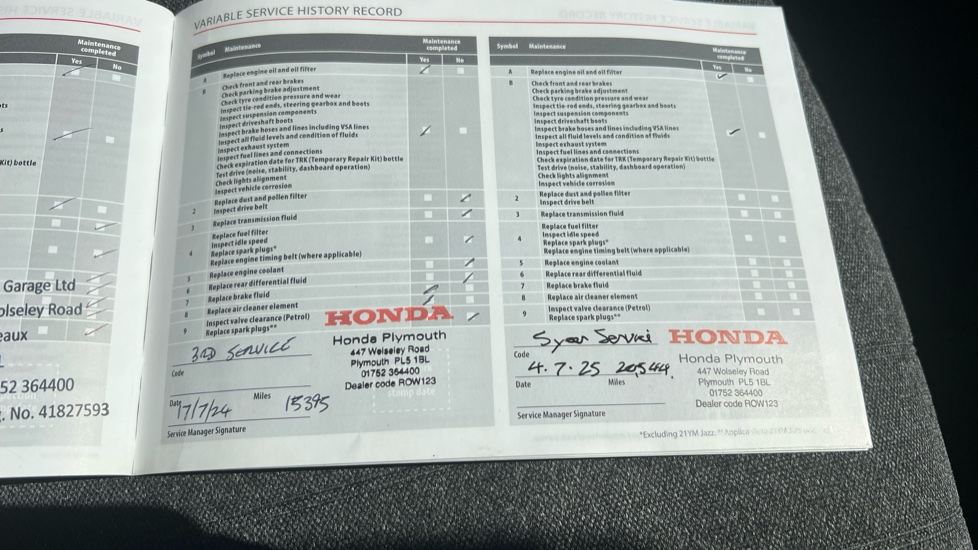 Maintenance
completed
Yes No
Kit) bottle
Garage Ltd
olseley Road
eaux
52 364400
. No. 41827593
VARIABLE SERVICE HISTORY RECORD
Symbol Maintenance Maintenance
completed
Yes No
A Replace engine oil and oil filter
B Check front and rear brakes
Check parking brake adjustment
Check tyre condition pressure and wear
Inspect tie-rod ends, steering gearbox and boots
Inspect suspension components
Inspect driveshaft boots
Inspect brake hoses and lines including VSA lines
Inspect all fluid levels and condition of fluids
Inspect exhaust system
Inspect fuel lines and connections
Check expiration date for TRK (Temporary Repair Kit) bottle
Test drive (noise, stability, dashboard operation)
Check lights alignment
Inspect vehicle corrosion
Replace dust and pollen filter
2 Inspect drive belt
3 Replace transmission fluid
Replace fuel filter
Inspect idle speed
4 Replace spark plugs*
Replace engine timing belt (where applicable)
5 Replace engine coolant
6 Replace rear differential fluid
7 Replace brake fluid
8 Replace air cleaner element
Inspect valve clearance (Petrol)
9 Replace spark plugs**
3RD SERVICE
Code
Date 17/7/24 Miles 15395
Service Manager Signature
HONDA
Honda Plymouth
447 Wolseley Road
Plymouth PL5 1BL
01752 364400
Dealer code ROW123
stamp date
Symbol Maintenance Maintenance
completed
Yes No
A Replace engine oil and oil filter
B Check front and rear brakes
Check parking brake adjustment
Check tyre condition pressure and wear
Inspect tie-rod ends, steering gearbox and boots
Inspect suspension components
Inspect driveshaft boots
Inspect brake hoses and lines including VSA lines
Inspect all fluid levels and condition of fluids
Inspect exhaust system
Inspect fuel lines and connections
Check expiration date for TRK (Temporary Repair Kit) bottle
Test drive (noise, stability, dashboard operation)
Check lights alignment
Inspect vehicle corrosion
2 Replace dust and pollen filter
Inspect drive belt
3 Replace transmission fluid
Replace fuel filter
Inspect idle speed
4 Replace spark plugs*
Replace engine timing belt (where applicable)
5 Replace engine coolant
6 Replace rear differential fluid
7 Replace brake fluid
8 Replace air cleaner element
9 Inspect valve clearance (Petrol)
Replace spark plugs**
5 year Servic
Code
4.7.25 20,544.
Date Miles
Service Manager Signature
HONDA
Honda Plymouth
447 Wolseley Road
Plymouth PL5 1BL
01752 364400
Dealer code ROW123
*Excluding 21YM Jazz.